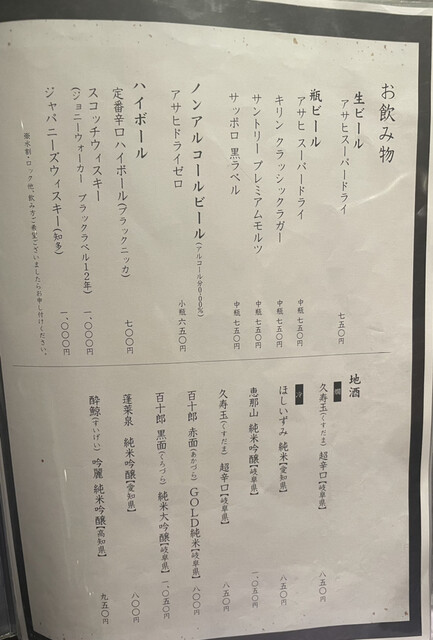 お飲み物
生ビール
アサヒスーパードライ 七五〇円
瓶ビール
アサヒ スーパードライ 中瓶 七五〇円
キリン クラッシックラガー 中瓶 七五〇円
サントリー プレミアムモルツ 中瓶 七五〇円
サッポロ 黒ラベル 中瓶 七五〇円
ノンアルコールビール(アルコール分0.00%)
アサヒドライゼロ 小瓶 六五〇円
ハイボール
定番辛口ハイボール(ブラックニッカ) 七〇〇円
スコッチウィスキー
(ジョニーウォーカー ブラックラベル12年) 一、〇〇〇円
ジャパニーズウィスキー(知多) 一、〇〇〇円
※水割・ロック他、飲み方ご希望ございましたらお申し付けください。
地酒
久寿玉(くすだま) 超辛口【岐阜県】 八五〇円
ほしいずみ 純米【愛知県】 八五〇円
恵那山 純米吟醸【岐阜県】 一、〇五〇円
久寿玉(くすだま) 超辛口【岐阜県】 八五〇円
百十郎 赤面(あかづら) GOLD純米【岐阜県】 八〇〇円
百十郎 黒面(くろづら) 純米大吟醸【岐阜県】 一、〇五〇円
蓬莱泉 純米吟醸【愛知県】 八〇〇円
酔鯨(すいげい) 吟麗 純米吟醸【高知県】 九五〇円